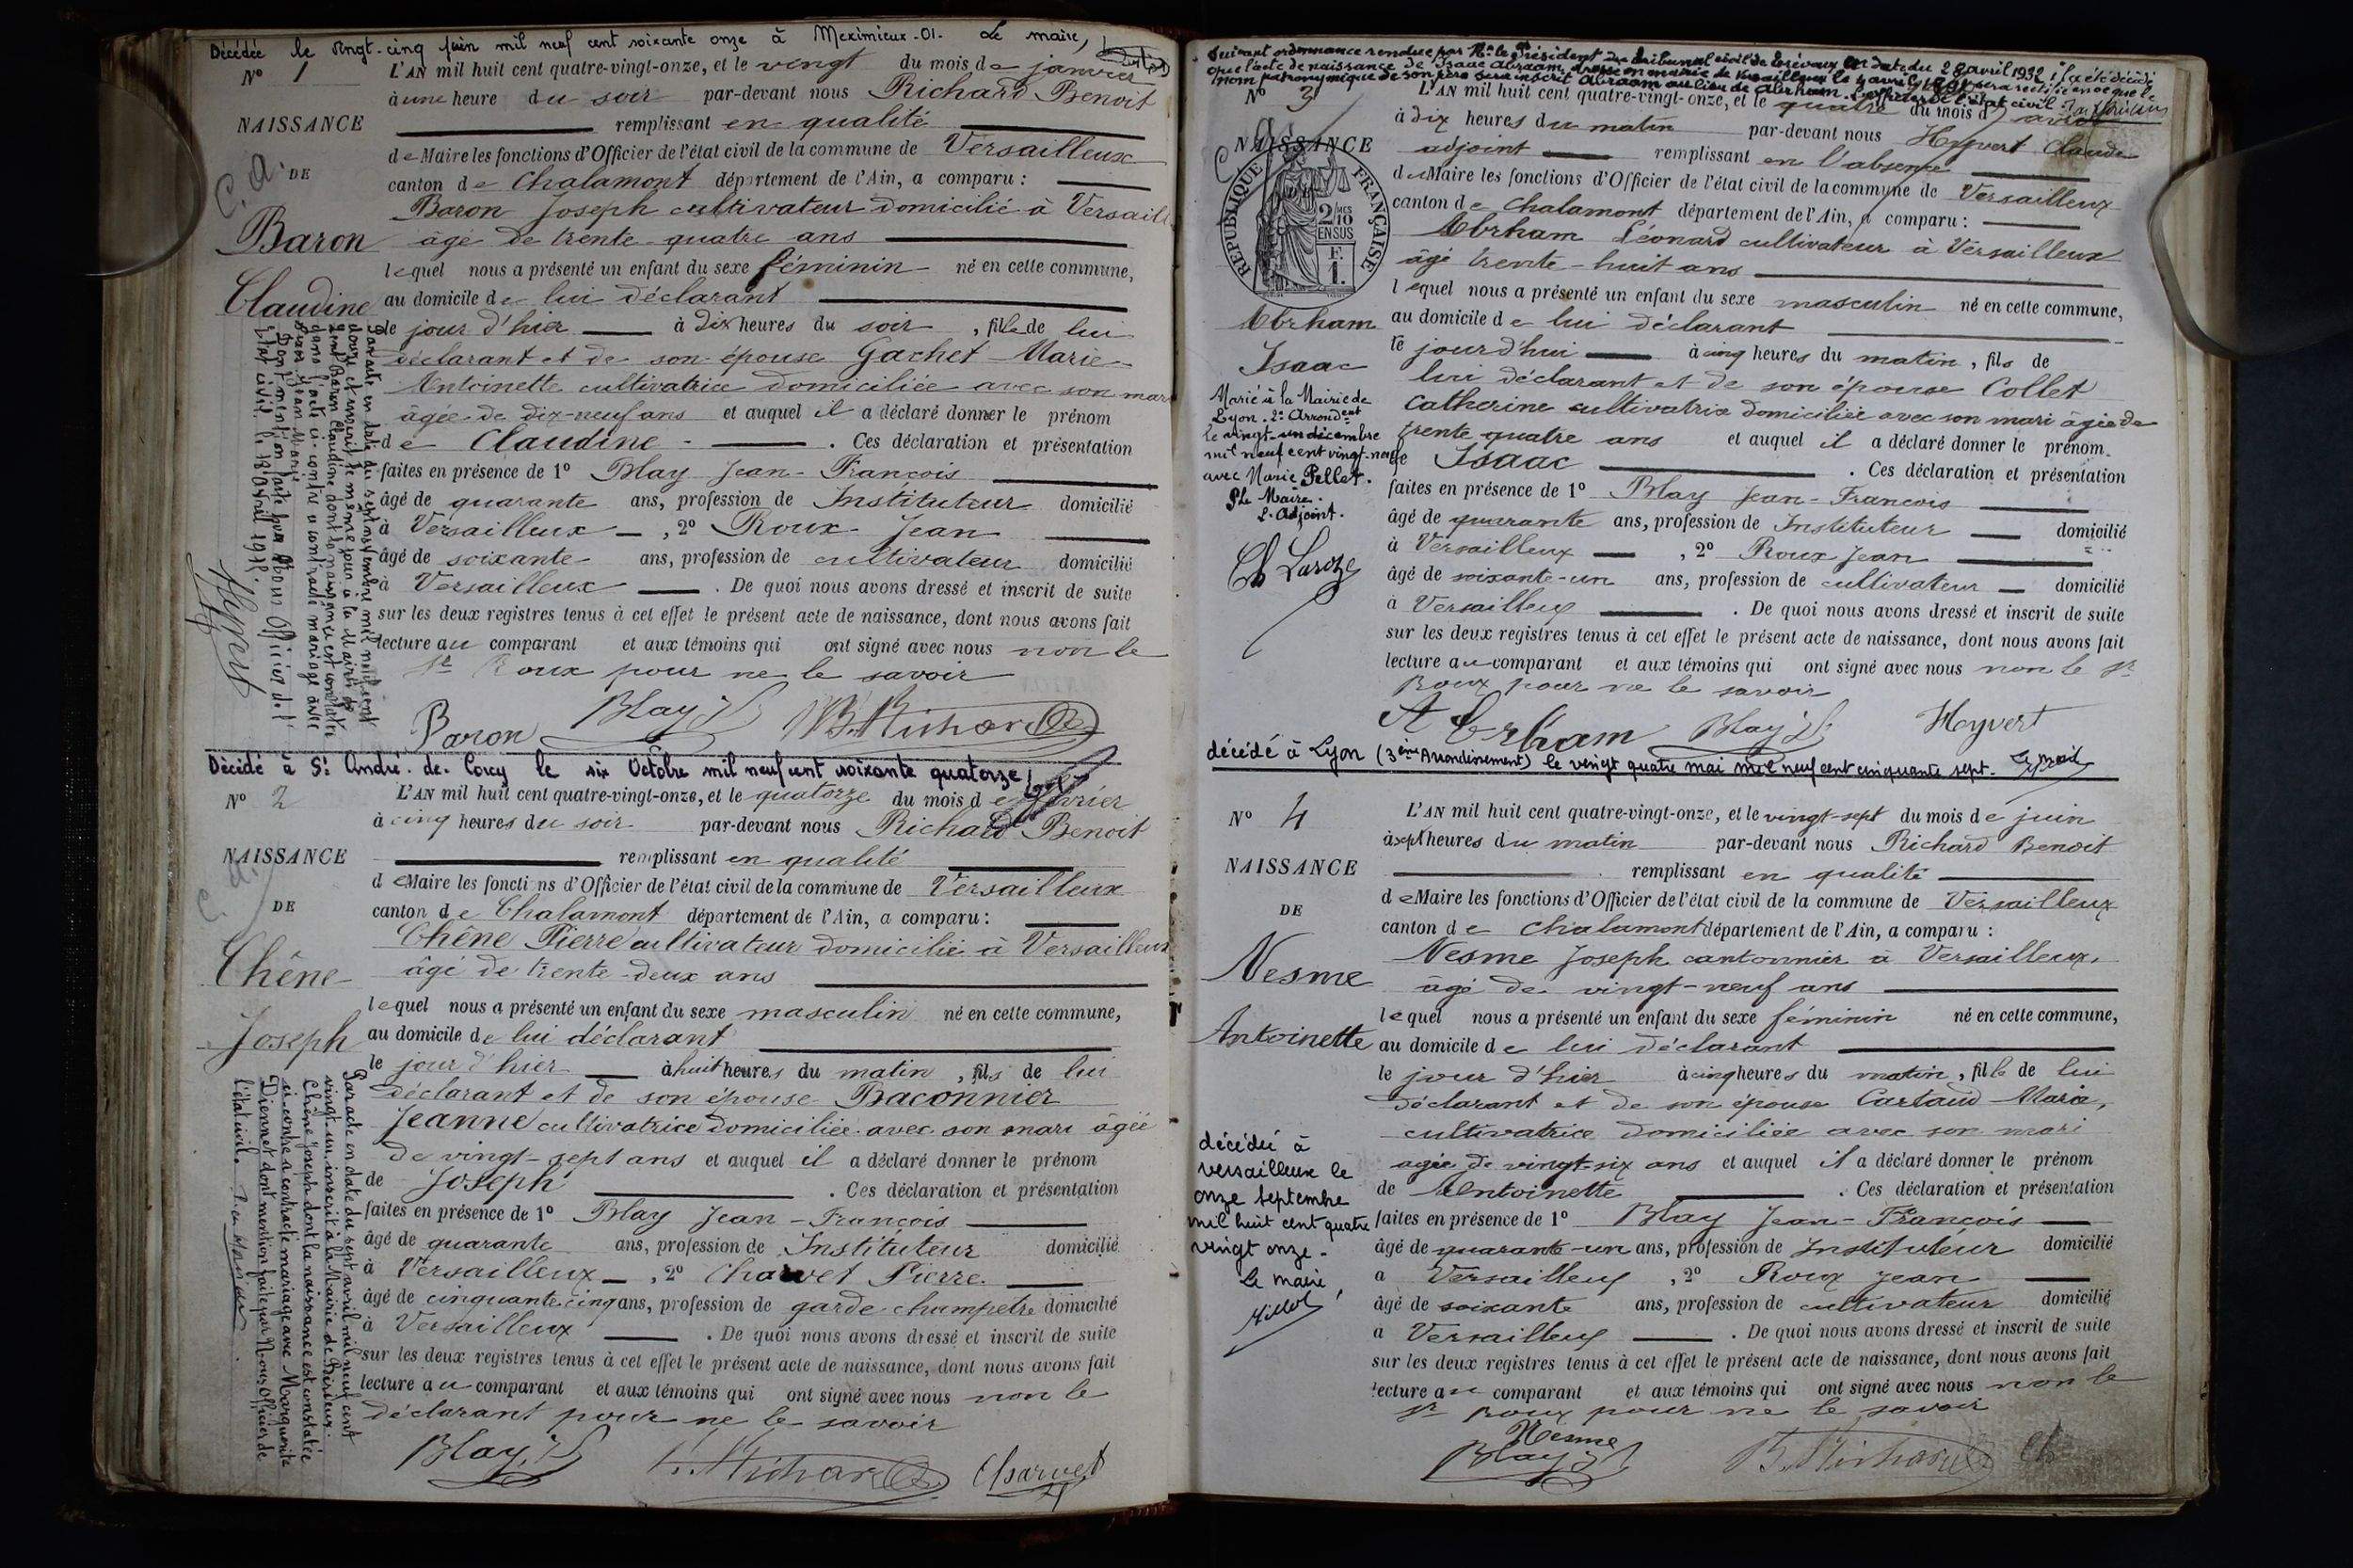 Décédée le vingt-cinq juin mil neuf cent soixante onze à Meximieux-01. Le maire,
N° 1
L'AN mil huit cent quatre-vingt-onze, et le vingt du mois de janvier
à une heure du soir par-devant nous Richard Benoit
NAISSANCE
remplissant en qualité
de Maire les fonctions d'Officier de l'état civil de la commune de Versailleux
C. a.
DE
canton de Chalamont département de l'Ain, a comparu :
Baron Joseph cultivateur domicilié à Versaill
Baron
âgé de trente-quatre ans
lequel nous a présenté un enfant du sexe féminin né en cette commune,
Claudine
au domicile de lui déclarant
le jour d'hier à dix heures du soir, fille de lui
déclarant et de son épouse Gachet Marie
Antoinette cultivatrice domiciliée avec son mari
âgée de dix-neuf ans et auquel il a déclaré donner le prénom
de Claudine. Ces déclaration et présentation
faites en présence de 1° Blay Jean-François
âgé de quarante ans, profession de Instituteur domicilié
à Versailleux, 2° Roux Jean
âgé de soixante ans, profession de cultivateur domicilié
à Versailleux. De quoi nous avons dressé et inscrit de suite
sur les deux registres tenus à cet effet le présent acte de naissance, dont nous avons fait
lecture au comparant et aux témoins qui ont signé avec nous non le
sr Roux pour ne le savoir
Par acte en date du sept novembre mil neuf cent
douze et inscrit le même jour à la Mairie de
Baron Claudine dont la naissance est constatée
dans l'acte ci-contre a contracté mariage avec
Jean Marie
Dont mention faite par Nous Officier de l'
état civil le 18 Avril 19
Hyvert
Baron Blay B. Richard
Décédé à St André-de-Corcy le six Octobre mil neuf cent soixante quatorze
N° 2
L'AN mil huit cent quatre-vingt-onze, et le quatorze du mois de février
à cinq heures du soir par-devant nous Richard Benoit
NAISSANCE
remplissant en qualité
de Maire les fonctions d'Officier de l'état civil de la commune de Versailleux
C. a.
DE
canton de Chalamont département de l'Ain, a comparu :
Chêne Pierre cultivateur domicilié à Versailleux
Chêne
âgé de trente-deux ans
lequel nous a présenté un enfant du sexe masculin né en cette commune,
Joseph
au domicile de lui déclarant
le jour d'hier à huit heures du matin, fils de lui
déclarant et de son épouse Baconnier
Jeanne cultivatrice domiciliée avec son mari âgée
de vingt-sept ans et auquel il a déclaré donner le prénom
de Joseph. Ces déclaration et présentation
faites en présence de 1° Blay Jean-François
âgé de quarante ans, profession de Instituteur domicilié
à Versailleux, 2° Charvet Pierre
âgé de cinquante cinq ans, profession de garde champetre domicilié
à Versailleux. De quoi nous avons dressé et inscrit de suite
sur les deux registres tenus à cet effet le présent acte de naissance, dont nous avons fait
lecture au comparant et aux témoins qui ont signé avec nous non le
déclarant pour ne le savoir
Par acte en date du sept avril mil neuf cent
vingt un, inscrit à la Mairie de
Chêne Joseph dont la naissance est constatée
ci-contre a contracté mariage avec Marguerite
Diennet dont mention faite par Nous Officier de
l'état civil.
Blay B. Richard Charvet
Suivant ordonnance rendue par Mr le Président du tribunal civil de Trévoux en date du 28 avril 1932 il a été décidé
que l'acte de naissance de Isaac Abraam, dressé en mairie de Versailleux le 4 avril 1891 sera rectifié en ce que le
nom patronymique de son père sera inscrit Abraam au lieu de Abrham. L'officier de l'état civil
N° 3
L'AN mil huit cent quatre-vingt-onze, et le quatre du mois d'avril
à dix heures du matin par-devant nous Heyvert Claude
NAISSANCE
adjoint remplissant en l'absence
de Maire les fonctions d'Officier de l'état civil de la commune de Versailleux
canton de Chalamont département de l'Ain, a comparu :
RÉPUBLIQUE FRANÇAISE
2/10 MES
EN SUS
F.
1.
Abrham Léonard cultivateur à Versailleux
âgé trente-huit ans
lequel nous a présenté un enfant du sexe masculin né en cette commune,
Abrham
au domicile de lui déclarant
Isaac
le jourd'hui à cinq heures du matin, fils de
lui déclarant et de son épouse Collet
Catherine cultivatrice domiciliée avec son mari âgée de
trente quatre ans et auquel il a déclaré donner le prénom
de Isaac. Ces déclaration et présentation
faites en présence de 1° Blay Jean-François
âgé de quarante ans, profession de Instituteur domicilié
à Versailleux, 2° Roux Jean
âgé de soixante-un ans, profession de cultivateur domicilié
à Versailleux. De quoi nous avons dressé et inscrit de suite
sur les deux registres tenus à cet effet le présent acte de naissance, dont nous avons fait
lecture au comparant et aux témoins qui ont signé avec nous non le sr
Roux pour ne le savoir
Marié à la Mairie de
Lyon - 2e Arrondent
le vingt-un décembre
mil neuf cent vingt-neuf
avec Marie Pellet.
P. le Maire.
L'Adjoint.
Ch Laroze
Abrham Blay Heyvert
décédé à Lyon (3ème Arrondissement) le vingt quatre mai mil neuf cent cinquante sept.
N° 4
L'AN mil huit cent quatre-vingt-onze, et le vingt-sept du mois de juin
à sept heures du matin par-devant nous Richard Benoit
NAISSANCE
remplissant en qualité
de Maire les fonctions d'Officier de l'état civil de la commune de Versailleux
DE
canton de Chalamont département de l'Ain, a comparu :
Nesme Joseph cantonnier à Versailleux,
Nesme
âgé de vingt-neuf ans
lequel nous a présenté un enfant du sexe féminin né en cette commune,
Antoinette
au domicile de lui déclarant
le jour d'hier à cinq heures du matin, fille de lui
déclarant et de son épouse Cartaud Marie,
cultivatrice domiciliée avec son mari
agée de vingt-six ans et auquel il a déclaré donner le prénom
de Antoinette. Ces déclaration et présentation
faites en présence de 1° Blay Jean-François
âgé de quarante-un ans, profession de Instituteur domicilié
à Versailleux, 2° Roux Jean
âgé de soixante ans, profession de cultivateur domicilié
à Versailleux. De quoi nous avons dressé et inscrit de suite
sur les deux registres tenus à cet effet le présent acte de naissance, dont nous avons fait
lecture au comparant et aux témoins qui ont signé avec nous non le
sr Roux pour ne le savoir
décédée à
Versailleux le
onze Septembre
mil huit cent quatre
vingt onze.
Le maire,
Nesme
Blay B. Richard